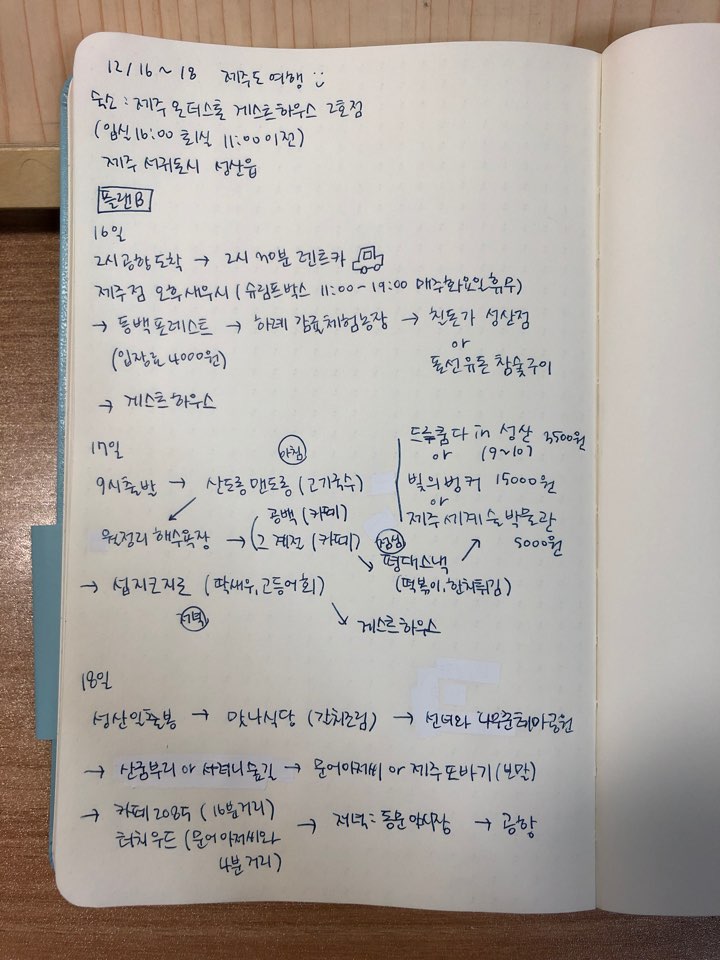 12/16~18 제주도 여행
숙소 : 제주 오더스톨 게스트하우스 2호점
(입실 16:00 퇴실 11:00 이전)
제주 서귀포시 성산읍
플랜B
16일
2시 공항 도착 → 2시 30분 렌트카
제주점 오후새우시 (슈림프박스 11:00~19:00 매주 화요일 휴무)
→ 동백포레스트 → 하례 감귤체험농장 → 친돈가 성산점
(입장료 4000원)
or
돌선유돈 참숯구이
→ 게스트하우스
17일
아침
9시 출발 → 산도롱맨도롱 (고기국수)
월정리 해수욕장 → 공백 (카페)
그 계절 (카페)
점심
평대스낵
(떡볶이, 한치튀김)
드르쿰다 in 성산 3500원
or (9~10)
빛의벙커 15000원
or
제주 세계 술 박물관
5000원
→ 섭지코지로 (딱새우, 고등어회)
저녁
게스트하우스
18일
성산일출봉 → 맛나식당 (갈치조림) → 선녀와 나무꾼 테마공원
→ 산굼부리 or 사려니숲길 → 문어아저씨 or 제주 또바기 (보말)
→ 카페 2085 (16분거리)
터치우드 (문어아저씨와
4분거리)
→ 저녁 : 동문야시장 → 공항